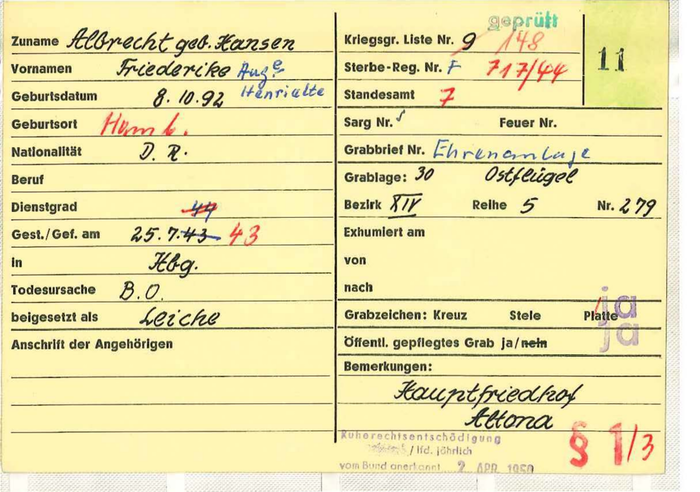 geprüft
11
Zuname Albrecht geb. Hansen
Vornamen Friederike Auge
Henriette
Geburtsdatum 8.10.92
Geburtsort Hamb.
Nationalität D. R.
Beruf
Dienstgrad 44
Gest./Gef. am 25.7.43 43
in Hbg.
Todesursache B.O.
beigesetzt als Leiche
Anschrift der Angehörigen
Kriegsgr. Liste Nr. 9 148
Sterbe-Reg. Nr. F 717/44
Standesamt 7
Sarg Nr. Feuer Nr.
Grabbrief Nr. Ehrenanlage
Grablage: 30 Ostflügel
Bezirk XIV Reihe 5 Nr. 279
Exhumiert am
von
nach
ja
Grabzeichen: Kreuz Stele Platte
ja
Öffentl. gepflegtes Grab ja/nein
Bemerkungen:
Hauptfriedhof
Altona
Ruherechtsentschädigung
/ lfd. jährlich
vom Bund anerkannt 2. APR. 1959
§ 1/3